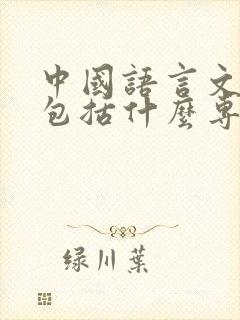 中國語言文
包括什麼專
绿川葉